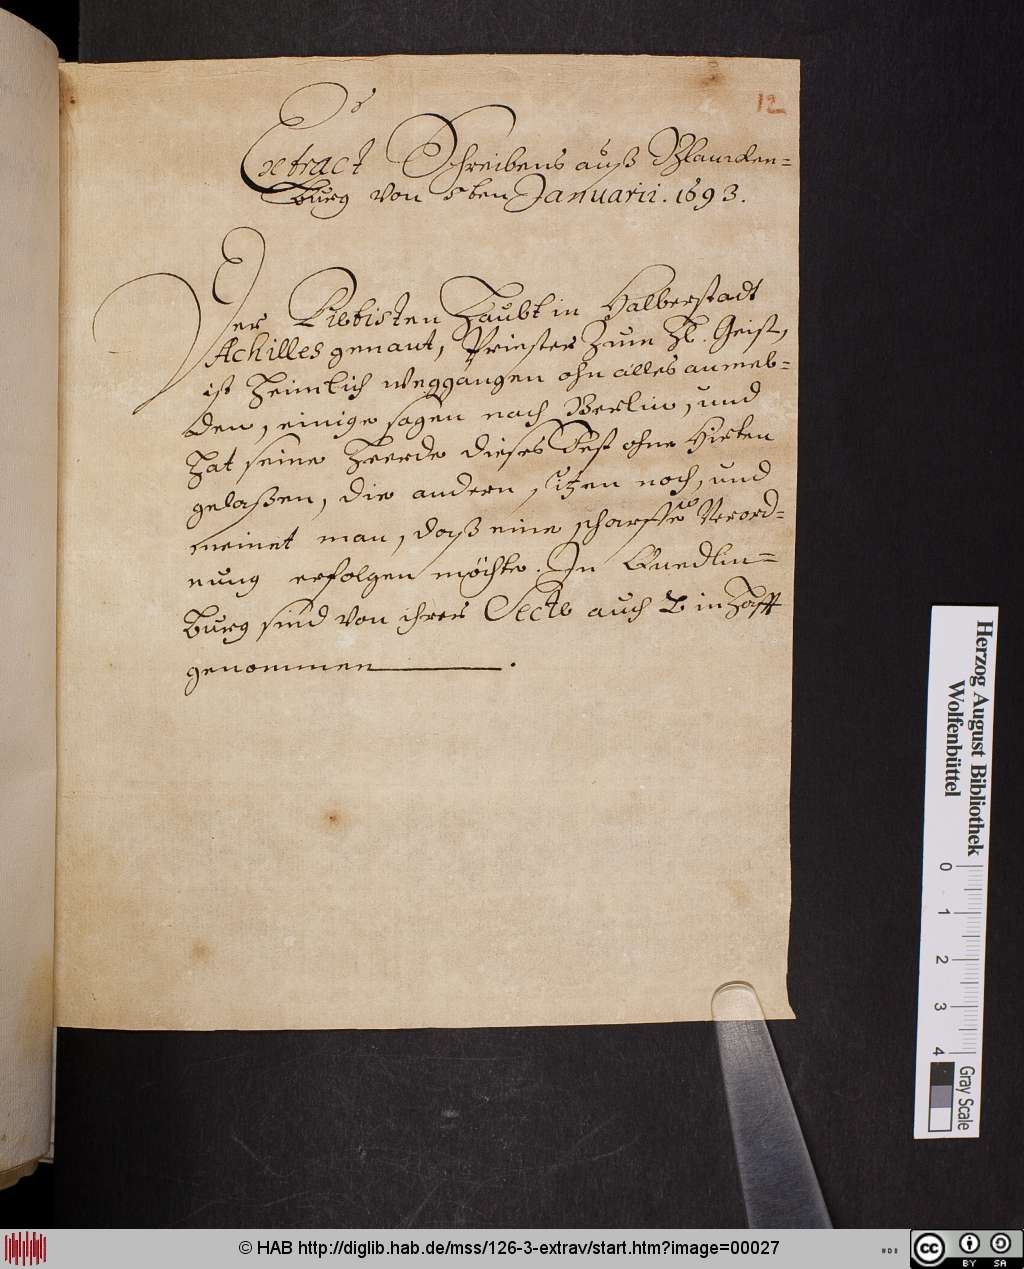 12
Extract Schreibens auß Blancken-
burg von 5ten Januarii. 1693.
Der Pietisten Haubt in Halberstadt
Achilles genant, Priester zum H. Geist,
ist heimlich weggangen ohn alles anmel-
den, einige sagen nach Berlin, und
hat seine Heerde dieses Fest ohne Hirten
gelaßen, die andern sitzen noch, und
meinet man, daß eine scharffe Verord-
nung erfolgen möchte. In Quedlin-
burg sind von ihrer Secte auch in Hafft
genommen.
Herzog August Bibliothek
Wolfenbüttel
0 1 2 3 4
Gray Scale
© HAB http://diglib.hab.de/mss/126-3-extrav/start.htm?image=00027
cc BY SA